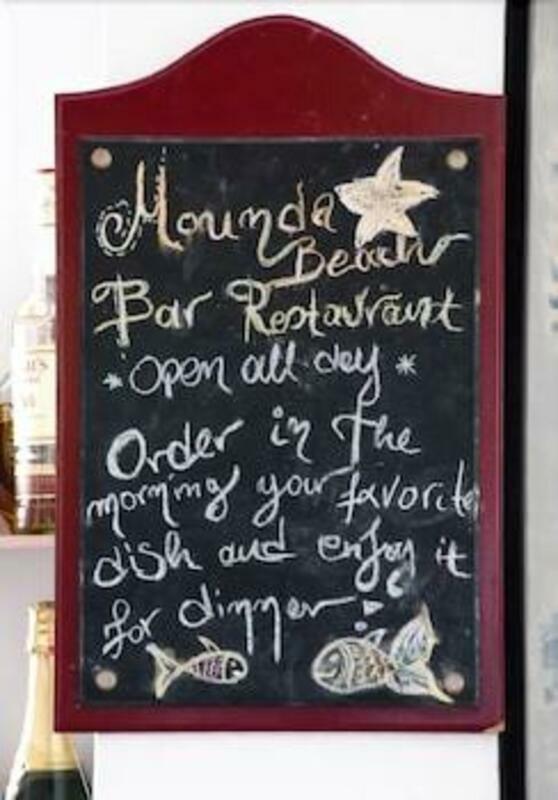 Mounda
Beach
Bar Restaurant
* Open all day *
Order in the
morning your favorite
dish and enjoy it
for dinner